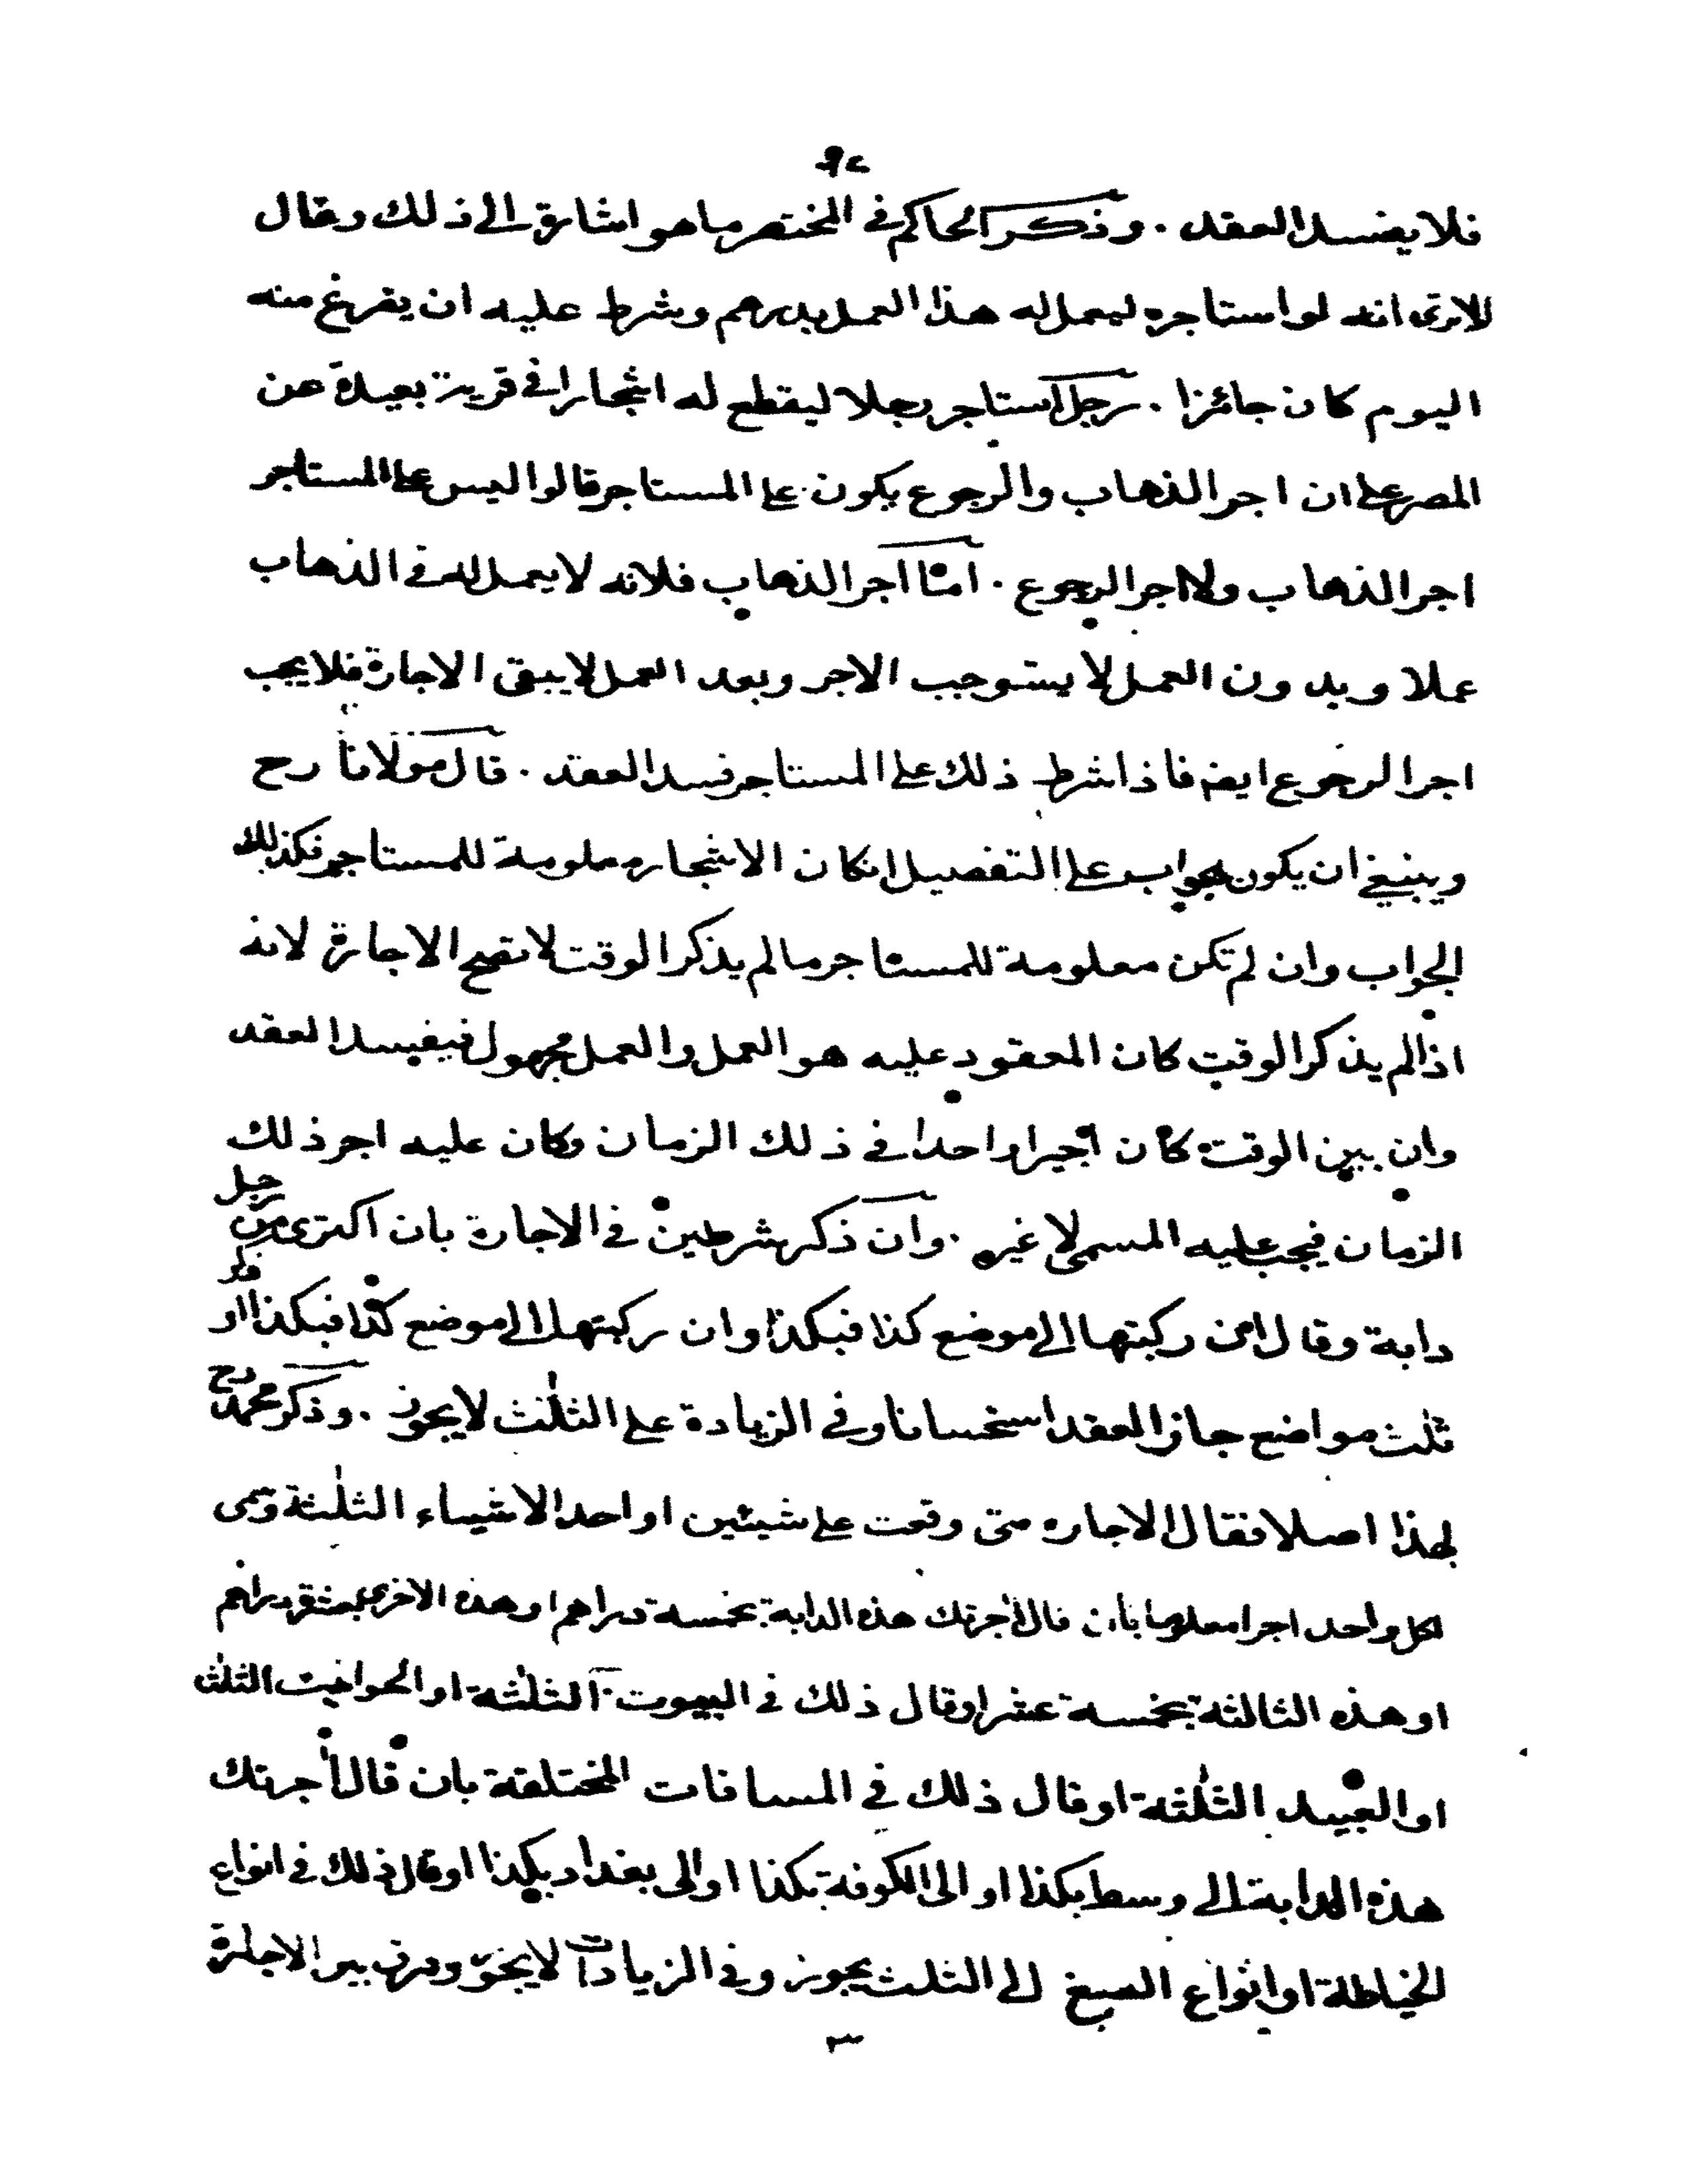 فلا يفسد العقد . وذكر الحاكم في المختصر ما هو اشارة الى ذلك وقال
الا ترى انه لو استاجره ليعمل له هذا العمل بدرهم وشرط عليه ان يفرغ منه
اليوم كان جائزا . رجل استاجر رجلا ليقطع له اشجارا في قرية بعيدة عن
المصر على ان اجر الذهاب والرجوع يكون على المستاجر قالوا ليس على المستاجر
اجر الذهاب ولا اجر الرجوع . اما اجر الذهاب فلانه لا يعمل له في الذهاب
عملا وبدون العمل لا يستوجب الاجر وبعد العمل لا يبقى الاجارة فلا يجب
اجر الرجوع ايضا فاذا شرط ذلك على المستاجر فسد العقد . قال مولانا رح
وينبغي ان يكون الجواب على التفصيل ان كان الاشجار معلومة للمستاجر فكذلك
الجواب وان لم تكن معلومة للمستاجر ما لم يذكر الوقت لا تصح الاجارة لانه
اذا لم يذكر الوقت كان المعقود عليه هو العمل والعمل مجهول فيفسد العقد
وان بين الوقت كان اجيرا واحدا في ذلك الزمان وكان عليه اجر ذلك
الزمان فيجب عليه المسمى لا غير . وان ذكر شرطين في الاجارة بان اكترى من رجل
دابة وقال ان ركبتها الى موضع كذا فبكذا وان ركبتها الى موضع كذا فبكذا او ذكر
ثلث مواضع جاز العقد استحسانا وفي الزيادة على الثلث لا يجوز . وذكر محمد رح
لهذا اصلا فقال الاجاره متى وقعت على شيئين او احد الاشياء الثلثة وسمى
لكل واحد اجرا معلوما بان قال اجرتك هذه الدابة بخمسة دراهم او هذه الاخرى بعشرة دراهم
او هذه الثالثة بخمسة عشر او قال ذلك في البيوت الثلثة او الحوانيت الثلث
او العبيد الثلثة او قال ذلك في المسافات المختلفة بان قال اجرتك
هذه الدابة الى وسط بكذا او الى الكوفة بكذا او الى بغداد بكذا او قال ذلك في انواع
الخياطة او انواع الصبغ الى الثلث يجوز وفي الزيادات لا يجوز وفرق بين الاجارة